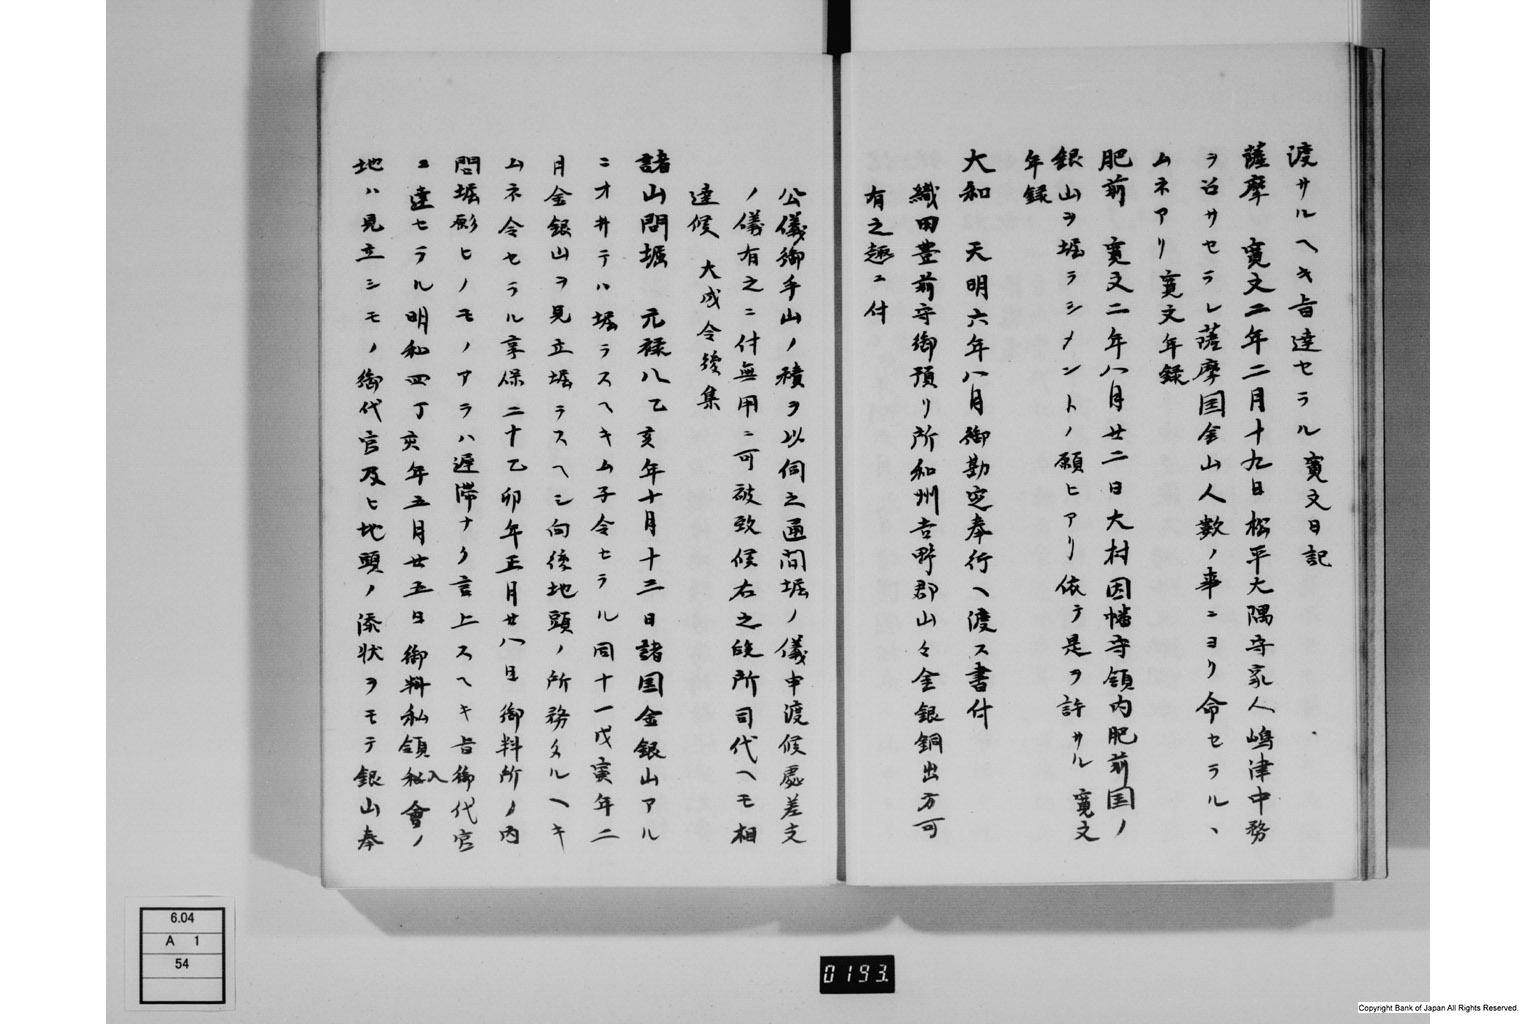 渡サルヘキ旨達セラル寛文日記
薩摩　寛文二年二月十九日松平大隅守家人嶋津中務
ヲ召サセラレ薩摩国金山人数ノ事ニヨリ命セラルヽ
ムネアリ寛文年録
肥前　寛文二年八月廿二日大村因幡守領内肥前国ノ
銀山ヲ堀ラシメントノ願ヒアリ依テ是ヲ許サル　寛文
年録
大和　天明六年八月御勘定奉行ヘ渡ス書付
織田豊前守御預リ所和州吉野郡山々金銀銅出方可
有之趣ニ付
公儀御手山ノ積ヲ以伺之通間堀ノ儀申渡候處差支
ノ儀有之ニ付無用ニ可被致候右之段所司代ヘモ相
達候　大成令後集
諸山問堀　元禄八乙亥年十月十三日諸国金銀山アル
ニオ井テハ堀ラスヘキムネ令セラル同十一戊寅年二
月金銀山ヲ見立堀ラスヘシ向後地頭ノ所務タルヘキ
ムネ令セラル享保二十乙卯年正月廿八日御料所ノ内
問堀願ヒノモノアラハ遅滞ナク言上スヘキ旨御代官
ニ達セラル明和四丁亥年五月廿五日御料私領入會ノ
地ハ見立シモノ御代官及ヒ地頭ノ添状ヲモテ銀山奉
6.04
A 1
54
0193
Copyright Bank of Japan All Rights Reserved.